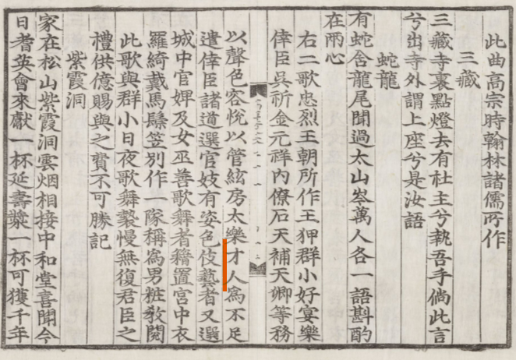 此曲高宗時翰林諸儒所作
三藏
三藏寺裏點燈去有社主兮執吾手倘此言
兮出寺外謂上座兮是汝語
蛇龍
有蛇含龍尾聞過太山岑萬人各一語斟酌
在兩心
右二歌忠烈王朝所作王狎群小好宴樂
倖臣吳祈金元祥內僚石天補天卿等務
以聲色容悅以管絃房太樂才人爲不足
遣倖臣諸道選官妓有姿色伎藝者又選
城中官婢及女巫善歌舞者籍置宮中衣
羅綺戴馬鬃笠別作一隊稱爲男粧教閱
此歌與群小日夜歌舞褻慢無復君臣之
禮供億賜與之費不可勝記
紫霞洞
家在松山紫霞洞雲烟相接中和堂喜聞今
日耆英會來獻一杯延壽漿一杯可獲千年